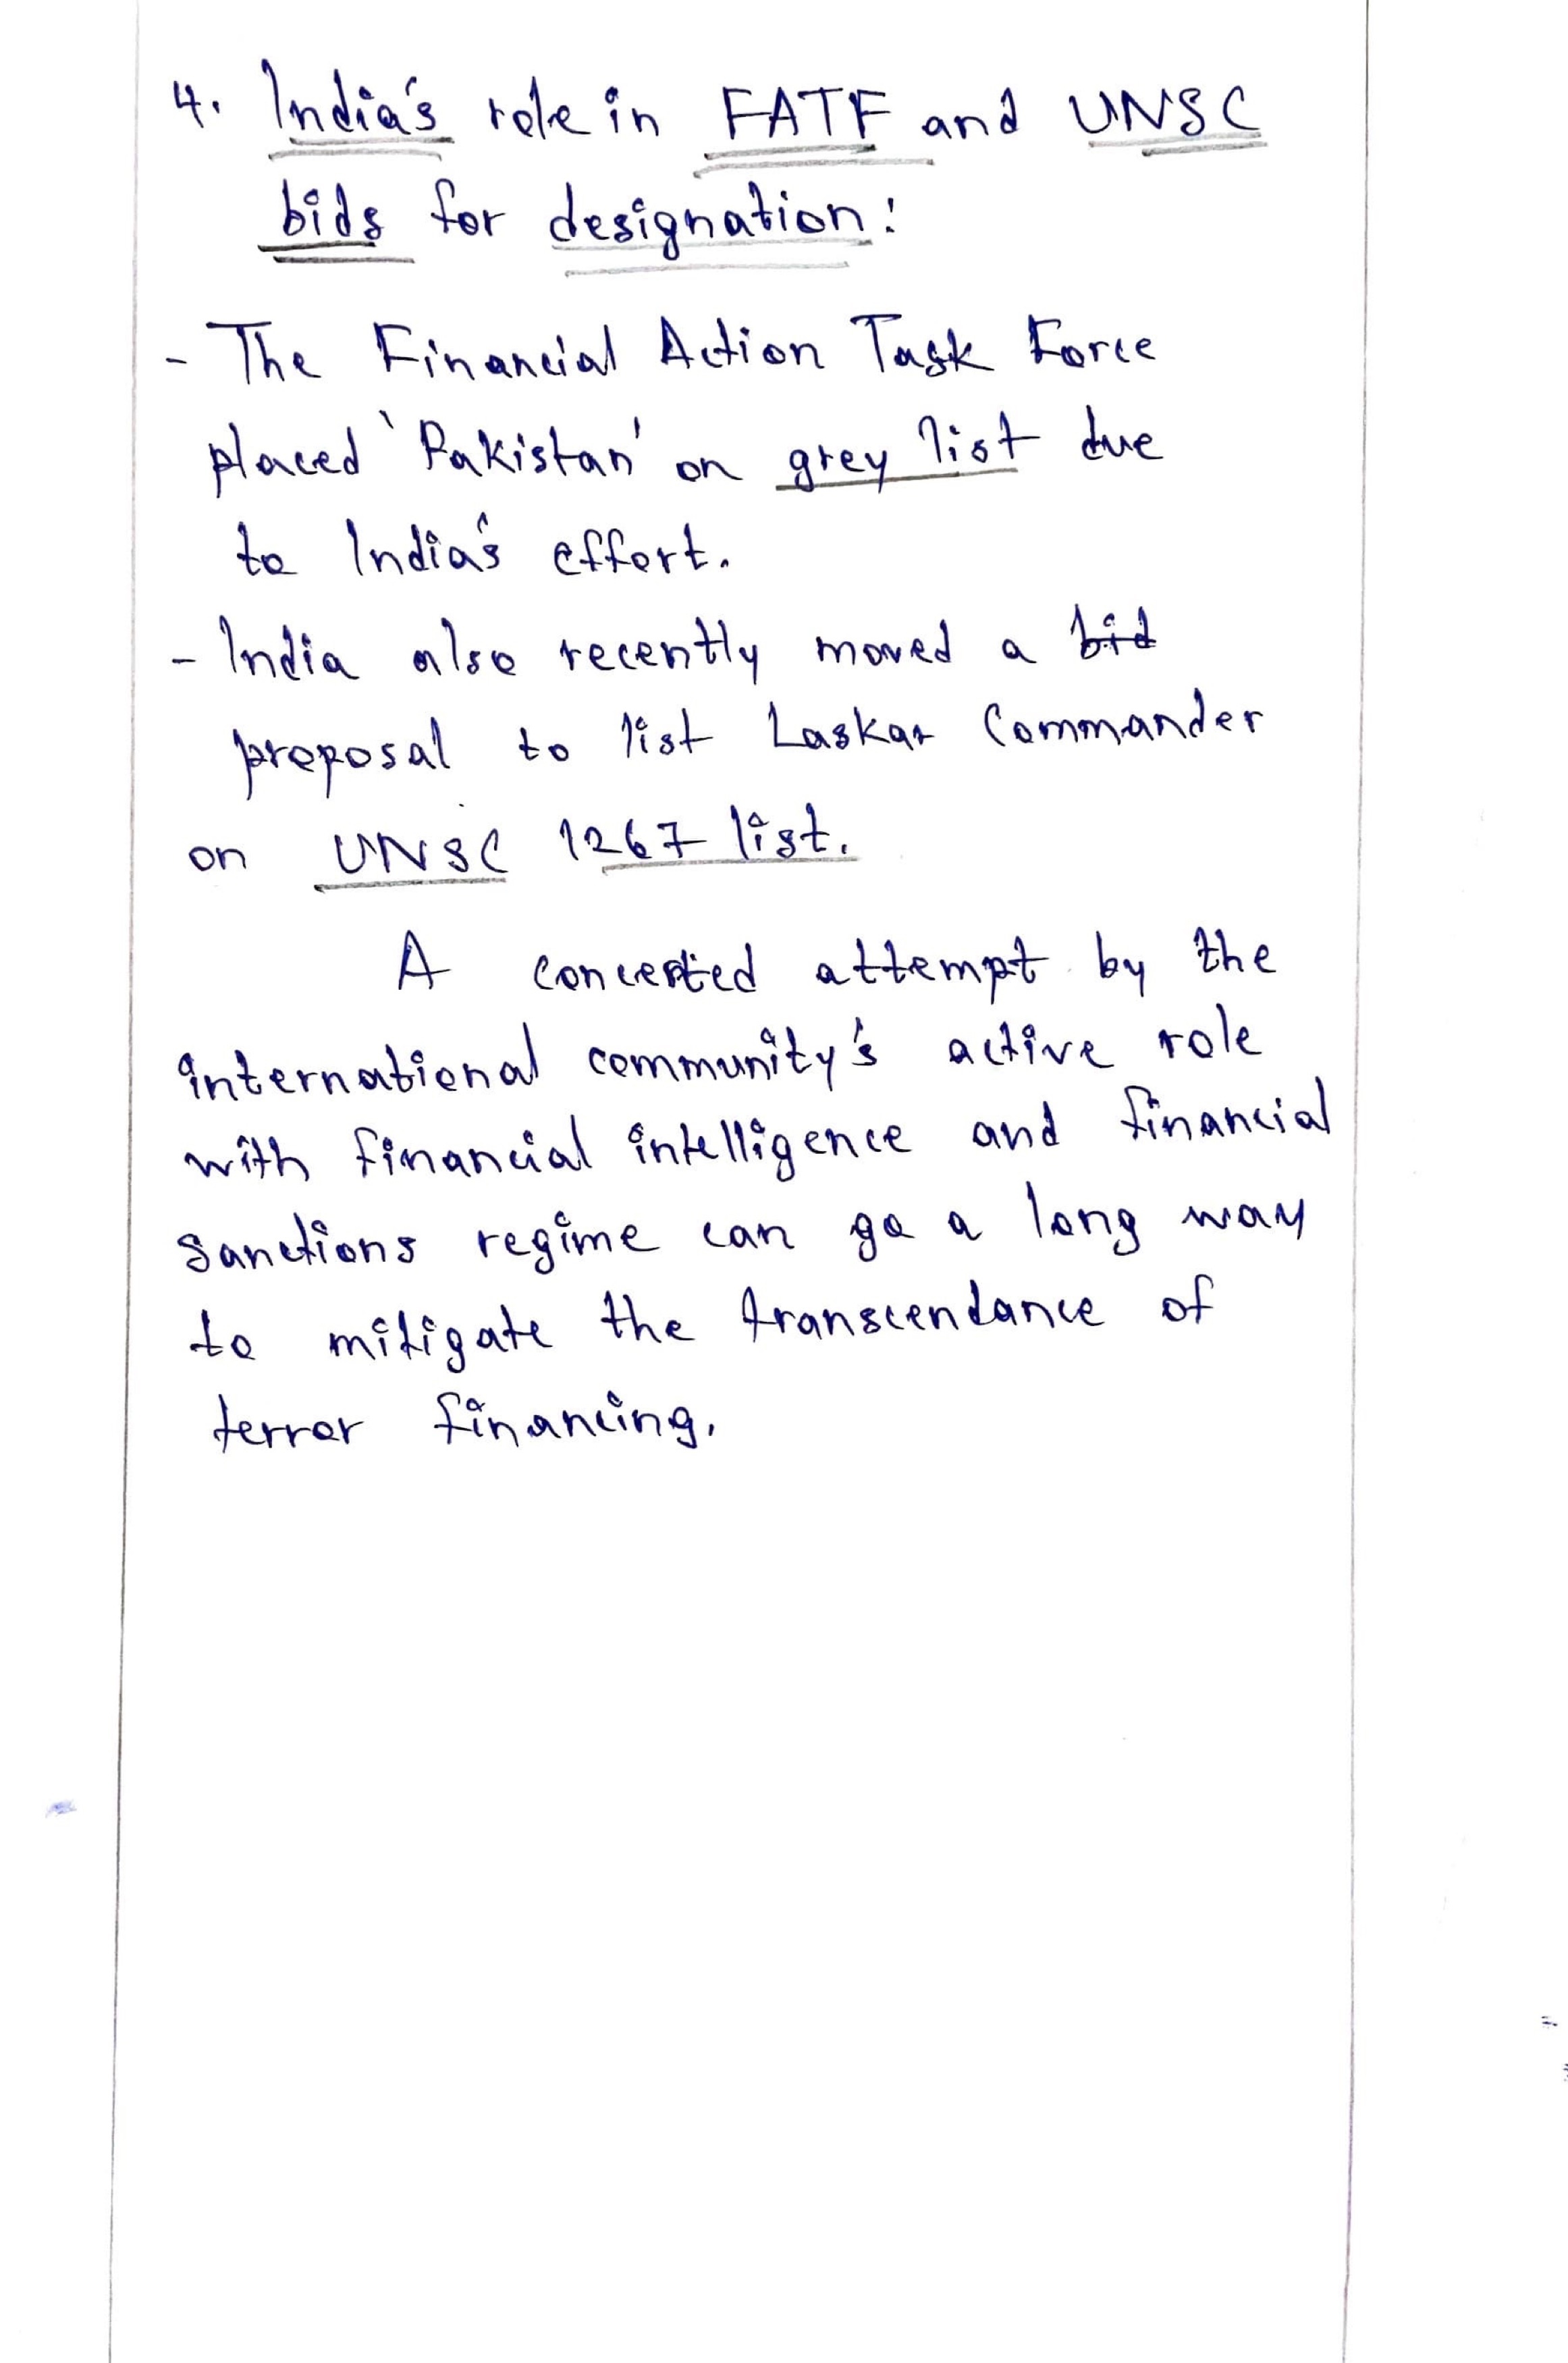 4. India's role in FATF and UNSC
bids for designation:
- The Financial Action Task Force
placed 'Pakistan' on grey list due
to India's effort.
- India also recently moved a bid
proposal to list Laskar Commander
on UNSC 1267 list.
A concerted attempt by the
international community's active role
with financial intelligence and financial
sanctions regime can go a long way
to mitigate the transcendance of
terror financing.